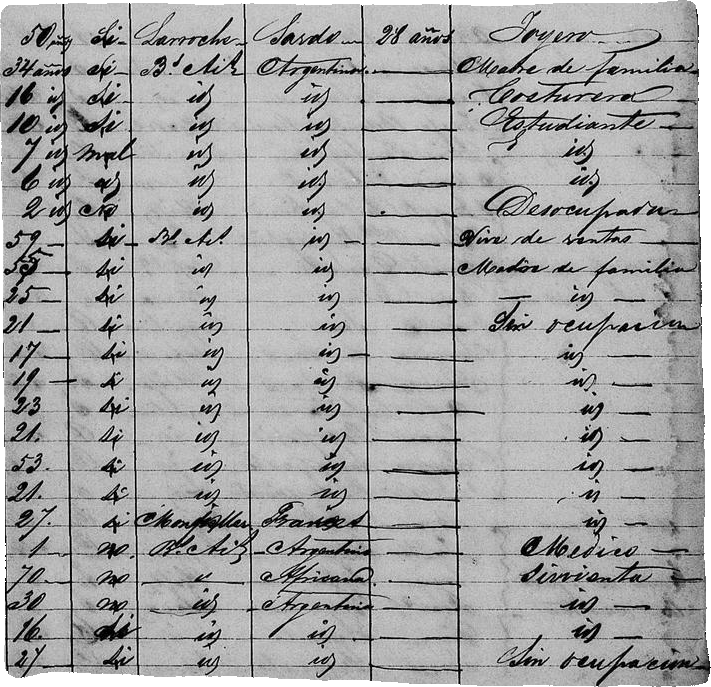 50 años Si Larroche Sardo 28 años Joyero
34 años Si Bs Ais Argentina Madre de familia
16 id Si id id Costurera
10 id Si id id Estudiante
7 id mal id id id
6 id id id id id
2 id No id id Desocupada
59 si Bs As id Vive de rentas
55 si id id Madre de familia
25 si id id id
21 si id id Sin ocupacion
17 si id id id
19 si id id id
23 si id id id
21. si id id id
53. si id id id
21. si id id id
27. si Frances id
1 no Bs Ais Argentino Medico
70 no Africana sirvienta
30 no id Argentina id
16. si id id id
27 si id id Sin ocupacion